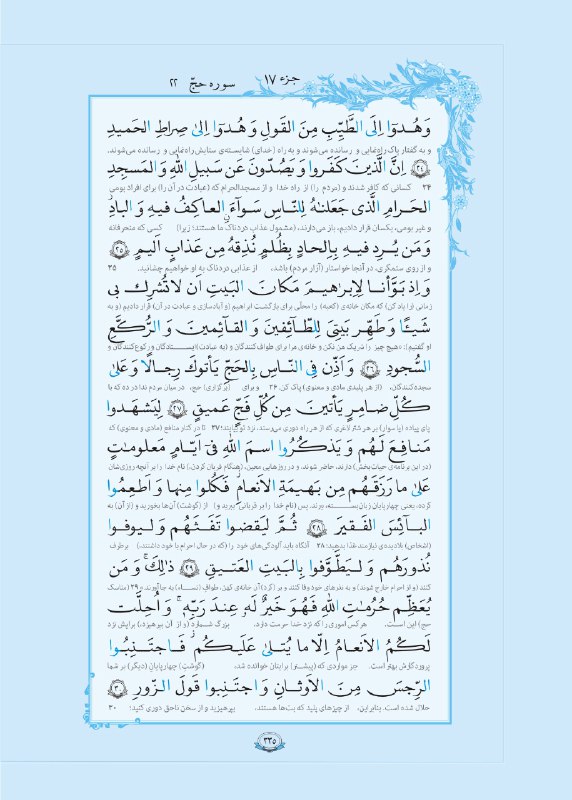 جزء ۱۷ سوره حجّ ۲۲
وَ هُدوٓا اِلَی الطَّیِّبِ مِنَ القَولِ وَ هُدوٓا اِلیٰ صِراطِ الحَمیدِ
و به گفتار پاک راه‌نمایی و رسانده می‌شوند و به راه (خدای) شایسته‌ی ستایش راه‌نمایی و رسانده می‌شوند.
﴿۲۴﴾ اِنَّ الَّذینَ کَفَروا وَ یَصُدّونَ عَن سَبیلِ اللّٰهِ وَ المَسجِدِ
۲۴ کسانی که کافر شدند و (مردم را) از راه خدا و از مسجدالحرام که (عبادت در آن را) برای افراد بومی
الحَرامِ الَّذی جَعَلنٰهُ لِلنّاسِ سَوآءً العاکِفُ فیهِ وَ البادِ
و غیر بومی، یکسان قرار دادیم، باز می‌دارند، (مشمول عذاب دردناک ما هستند؛ زیرا) کسی که منحرفانه
وَ مَن یُرِد فیهِ بِاِلحادٍ بِظُلمٍ نُذِقهُ مِن عَذابٍ اَلیمٍ ﴿۲۵﴾
و از روی ستمگری، در آنجا خواستار (آزار مردم) باشد، از عذابی دردناک به او خواهیم چشانید. ۲۵
وَ اِذ بَوَّأنا لِاِبرٰهیمَ مَکانَ البَیتِ اَن لا تُشرِک بی
زمانی (را یاد کن) که مکان خانه‌ی (کعبه) را محلّی برای بازگشت ابراهیم (و آبادسازی و عبادت در آن) قرار دادیم (و به
شَیئًا وَ طَهِّر بَیتِیَ لِلطّآئِفینَ وَ القآئِمینَ وَ الرُّکَّعِ
او گفتیم): «هیچ چیز را شریک من نکن و خانه‌ی مرا برای طواف‌کنندگان و (به عبادت) ایستادگان و رکوع‌کنندگان و
السُّجودِ ﴿۲۶﴾ وَ اَذِّن فِی النّاسِ بِالحَجِّ یَأتوکَ رِجالًا وَ عَلیٰ
سجده‌کنندگان، (از هر پلیدی مادی و معنوی) پاک کن. ۲۶ و برای (برگزاری) حج، در میان مردم ندا در ده که با
کُلِّ ضامِرٍ یَأتینَ مِن کُلِّ فَجٍّ عَمیقٍ ﴿۲۷﴾ لِیَشهَدوا
پای پیاده (یا سوار) بر هر شتر لاغری که از هر راه دوری می‌رسند، نزد تو بیایند؛ ۲۷ تا در کنار منافع (مادی و معنوی) که
مَنافِعَ لَهُم وَ یَذکُرُوا اسمَ اللّٰهِ فیٓ اَیّامٍ مَعلوماتٍ
(در این برنامه‌ی حیات‌بخش) دارند، حاضر شوند، و در روزهایی معین، (هنگام قربان کردن)، نام خدا را بر آنچه روزی‌شان
عَلیٰ ما رَزَقَهُم مِن بَهیمَةِ الاَنعامِ فَکُلوا مِنها وَ اَطعِمُوا
کرده؛ یعنی چهارپایان زبان‌بسته، ببرند. پس (نام خدا را بر قربانی ببرید و) از (گوشت) آن‌ها بخورید و (از آن) به
البآئِسَ الفَقیرَ ﴿۲۸﴾ ثُمَّ لیَقضوا تَفَثَهُم وَ لیوفوا
(اشخاص) بلادیده‌ی نیازمند غذا بدهید؛ ۲۸ آنگاه باید آلودگی‌های خود را (که در حال احرام با خود داشتند)، برطرف
نُذورَهُم وَ لیَطَّوَّفوا بِالبَیتِ العَتیقِ ﴿۲۹﴾ ذٰلِکَ وَ مَن
کنند (و از احرام خارج شوند) و به نذرهای خود وفا کنند و بر (گرد) آن خانه‌ی کهن، طواف (نساء) به جا آورند. ۲۹ (مناسک
یُعَظِّم حُرُمٰتِ اللّٰهِ فَهُوَ خَیرٌ لَهُ عِندَ رَبِّهِ وَ اُحِلَّت
حج) این است. هر کس اموری را که نزد خدا حرمت دارد، بزرگ شمارد (و از آن بپرهیزد)، برایش نزد
لَکُمُ الاَنعامُ اِلّا ما یُتلیٰ عَلَیکُم فَاجتَنِبُوا
پروردگارش بهتر است. جز مواردی که (پیشتر) برایتان خوانده شد، (گوشتِ) چهارپایان (دیگر) بر شما
الرِّجسَ مِنَ الاَوثانِ وَ اجتَنِبوا قَولَ الزّورِ ﴿۳۰﴾
حلال شده است. بنابراین، از چیزهای پلید که بت‌ها هستند، بپرهیزید و از سخن ناحق دوری کنید؛ ۳۰
۳۳۵